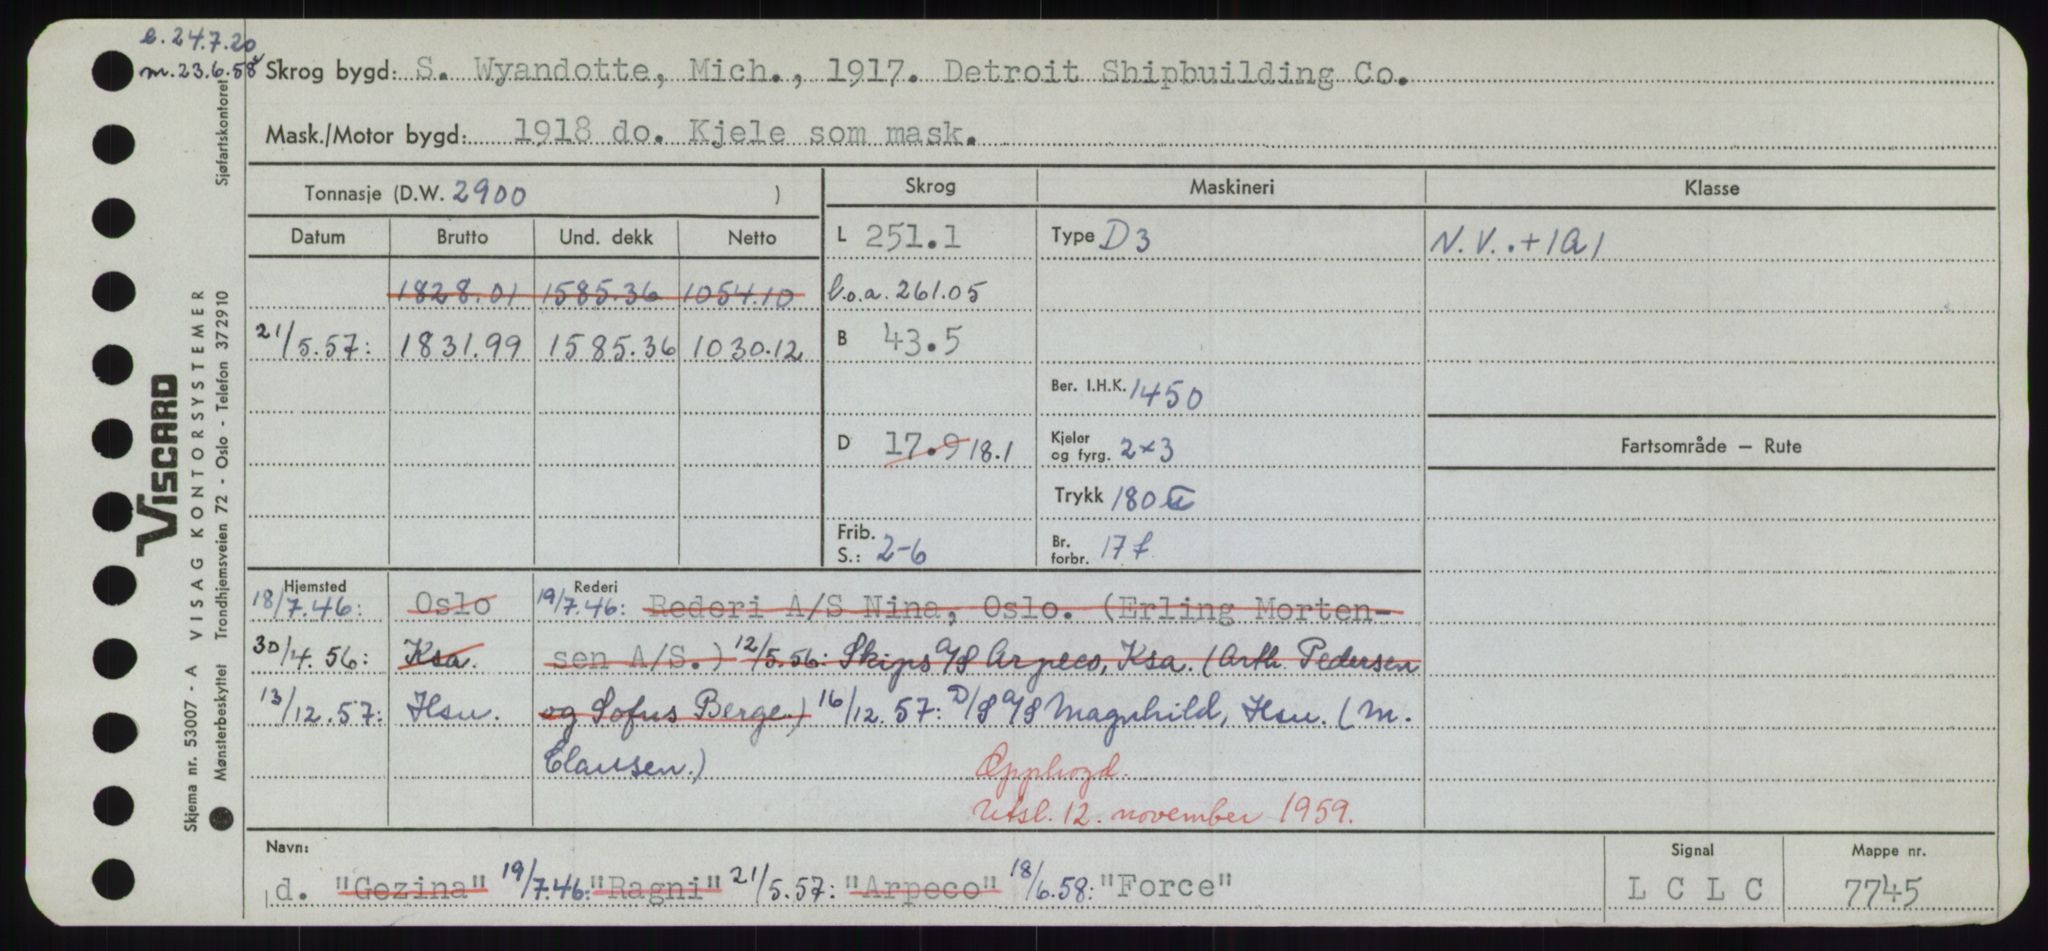 e. 24.7.20
m. 23.6.58
Skrog bygd: S. Wyandotte, Mich., 1917. Detroit Shipbuilding Co.
Mask./Motor bygd: 1918 do. Kjele som mask.
Tonnasje (D.W. 2900 )
Skrog Maskineri Klasse
Datum Brutto Und. dekk Netto
L 251.1 Type D3 N.V. .+1A1
1828.01 1585.36 1054.10 l.o.a. 261.05
21/5.57: 1831.99 1585.36 1030.12 B 43.5
Ber. I.H.K. 1450
D 17.9 18.1 Kjeler og fyrg. 2x3 Fartsområde — Rute
Trykk 180
Frib. S.: 2-6 Br. forbr. 17 t.
Hjemsted Rederi
18/7.46: Oslo 19/7.46: Rederi A/S Nina, Oslo. (Erling Morten-
30/4.56: Ksa. sen A/S.) 12/5.56: Skips A/S Arpeco, Ksa. (Arth. Pedersen
13/12.57: Hsu. og Sofus Berge.) 16/12.57: D/S A/S Magnhild, Hsu. (M.
Clausen.)
Opphogd.
Utsl. 12. november 1959.
Navn: Signal Mappe nr.
d. "Gezina" 19/7.46: "Ragni" 21/5.57: "Arpeco" 18/6.58: "Force" L C L C 7745
VISCARD
Skjema nr. 53007 - A VISAG KONTORSYSTEMER
Mønsterbeskyttet Trondhjemsveien 72 - Oslo - Telefon 372910 Sjøfartskontoret